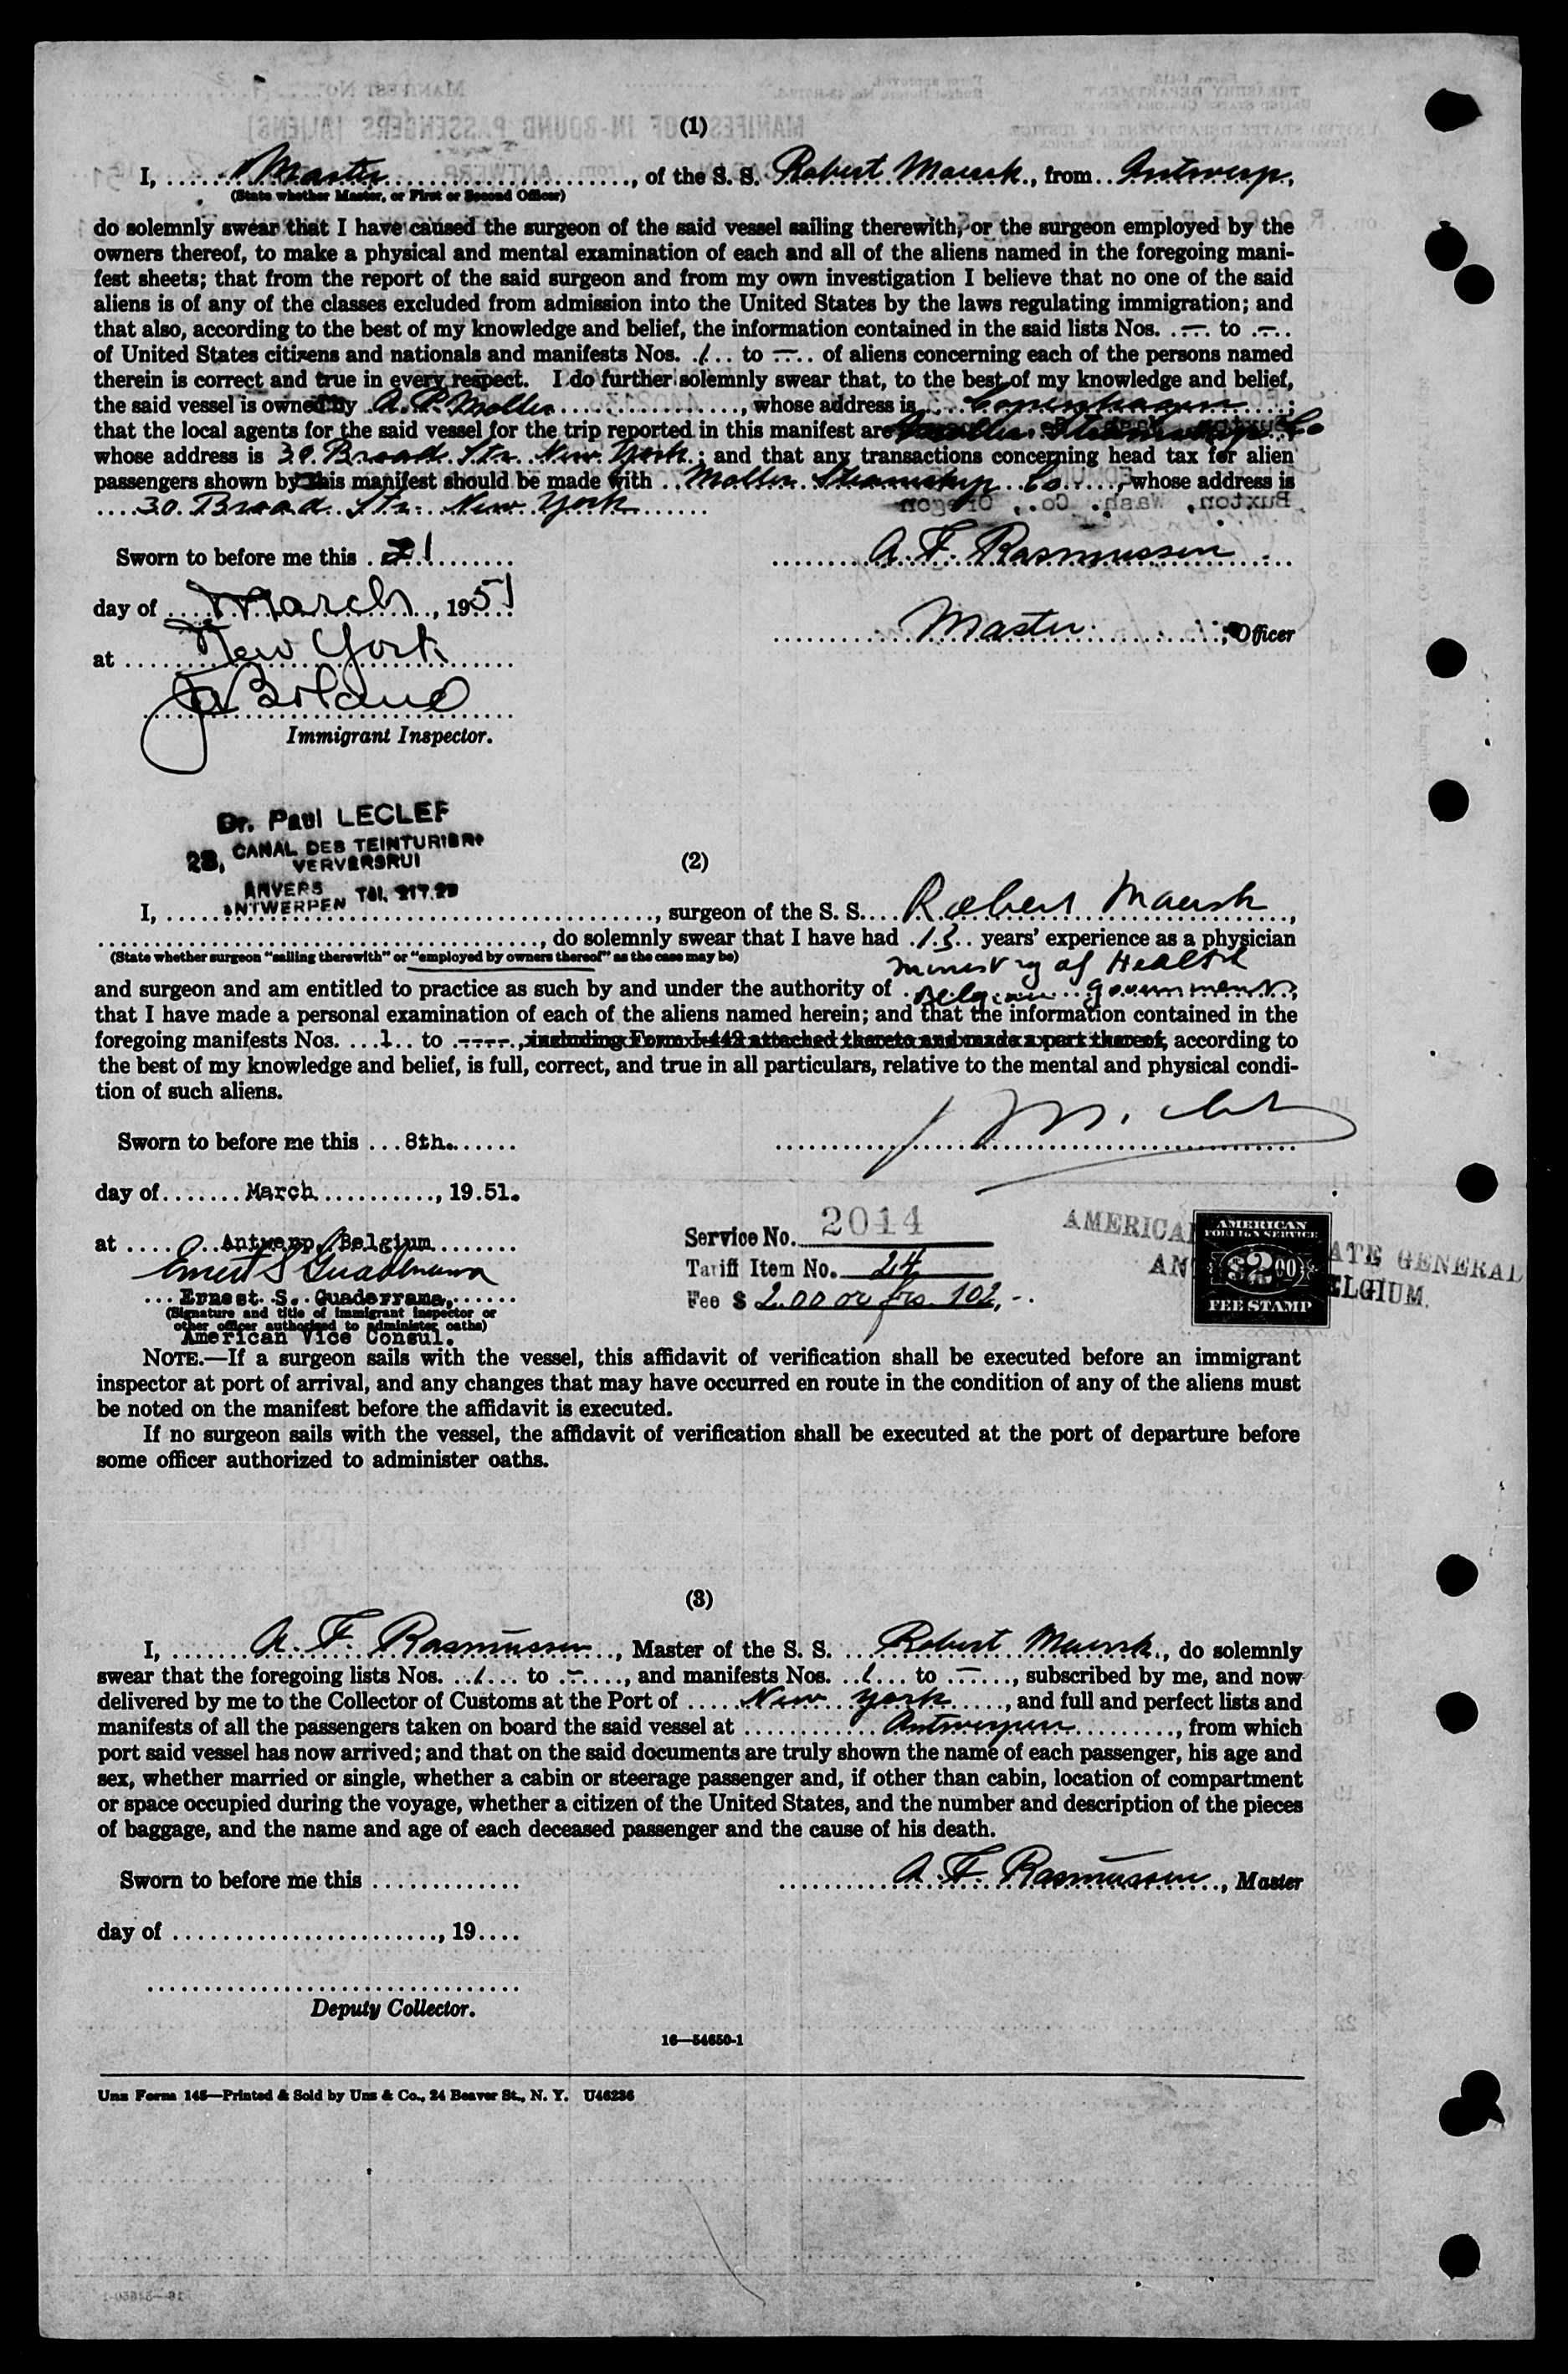 (1)
I, Master, of the S. S. Robert Maersk, from Antwerp,
(State whether Master, or First or Second Officer)
do solemnly swear that I have caused the surgeon of the said vessel sailing therewith, or the surgeon employed by the
owners thereof, to make a physical and mental examination of each and all of the aliens named in the foregoing mani-
fest sheets; that from the report of the said surgeon and from my own investigation I believe that no one of the said
aliens is of any of the classes excluded from admission into the United States by the laws regulating immigration; and
that also, according to the best of my knowledge and belief, the information contained in the said lists Nos. — to —
of United States citizens and nationals and manifests Nos. 1 to — of aliens concerning each of the persons named
therein is correct and true in every respect. I do further solemnly swear that, to the best of my knowledge and belief,
the said vessel is owned by A. P. Moller, whose address is Copenhagen;
that the local agents for the said vessel for the trip reported in this manifest are Moller Steamship Co
whose address is 30 Broad Str. New York; and that any transactions concerning head tax for alien
passengers shown by this manifest should be made with Moller Steamship Co, whose address is
30 Broad Str. New York
Sworn to before me this 21
A. F. Rasmussen
day of March, 1951
Master, Officer
at New York
Immigrant Inspector.
Dr. Paul LECLEF
28, CANAL DES TEINTURIERS
VERVERSRUI
ANVERS
ANTWERPEN Tél. 217.29
(2)
I, , surgeon of the S. S. Robert Maersk,
, do solemnly swear that I have had 13 years' experience as a physician
(State whether surgeon "sailing therewith" or "employed by owners thereof" as the case may be)
Ministry of Health
and surgeon and am entitled to practice as such by and under the authority of Belgian government,
that I have made a personal examination of each of the aliens named herein; and that the information contained in the
foregoing manifests Nos. 1 to ----, including Form I-442 attached thereto and made a part thereof, according to
the best of my knowledge and belief, is full, correct, and true in all particulars, relative to the mental and physical condi-
tion of such aliens.
Sworn to before me this 8th.
day of March, 1951.
at Antwerp, Belgium
Service No. 2014
Tariff Item No. 24
Fee $ 2.00 or frs. 102,-
AMERICAN FOREIGN SERVICE
$2.00
FEE STAMP
AMERICA ATE GENERAL
AN ELGIUM.
Ernest S. Guaderrama
Ernest S. Guaderrama,
(Signature and title of immigrant inspector or
other officer authorized to administer oaths)
American Vice Consul.
NOTE.—If a surgeon sails with the vessel, this affidavit of verification shall be executed before an immigrant
inspector at port of arrival, and any changes that may have occurred en route in the condition of any of the aliens must
be noted on the manifest before the affidavit is executed.
If no surgeon sails with the vessel, the affidavit of verification shall be executed at the port of departure before
some officer authorized to administer oaths.
(3)
I, A. F. Rasmussen, Master of the S. S. Robert Maersk, do solemnly
swear that the foregoing lists Nos. 1 to —, and manifests Nos. 1 to —, subscribed by me, and now
delivered by me to the Collector of Customs at the Port of New York, and full and perfect lists and
manifests of all the passengers taken on board the said vessel at Antwerpen, from which
port said vessel has now arrived; and that on the said documents are truly shown the name of each passenger, his age and
sex, whether married or single, whether a cabin or steerage passenger and, if other than cabin, location of compartment
or space occupied during the voyage, whether a citizen of the United States, and the number and description of the pieces
of baggage, and the name and age of each deceased passenger and the cause of his death.
Sworn to before me this
A. F. Rasmussen, Master
day of , 19
Deputy Collector.
16—54650-1
Unz Form 145—Printed & Sold by Unz & Co., 24 Beaver St., N. Y. U46236